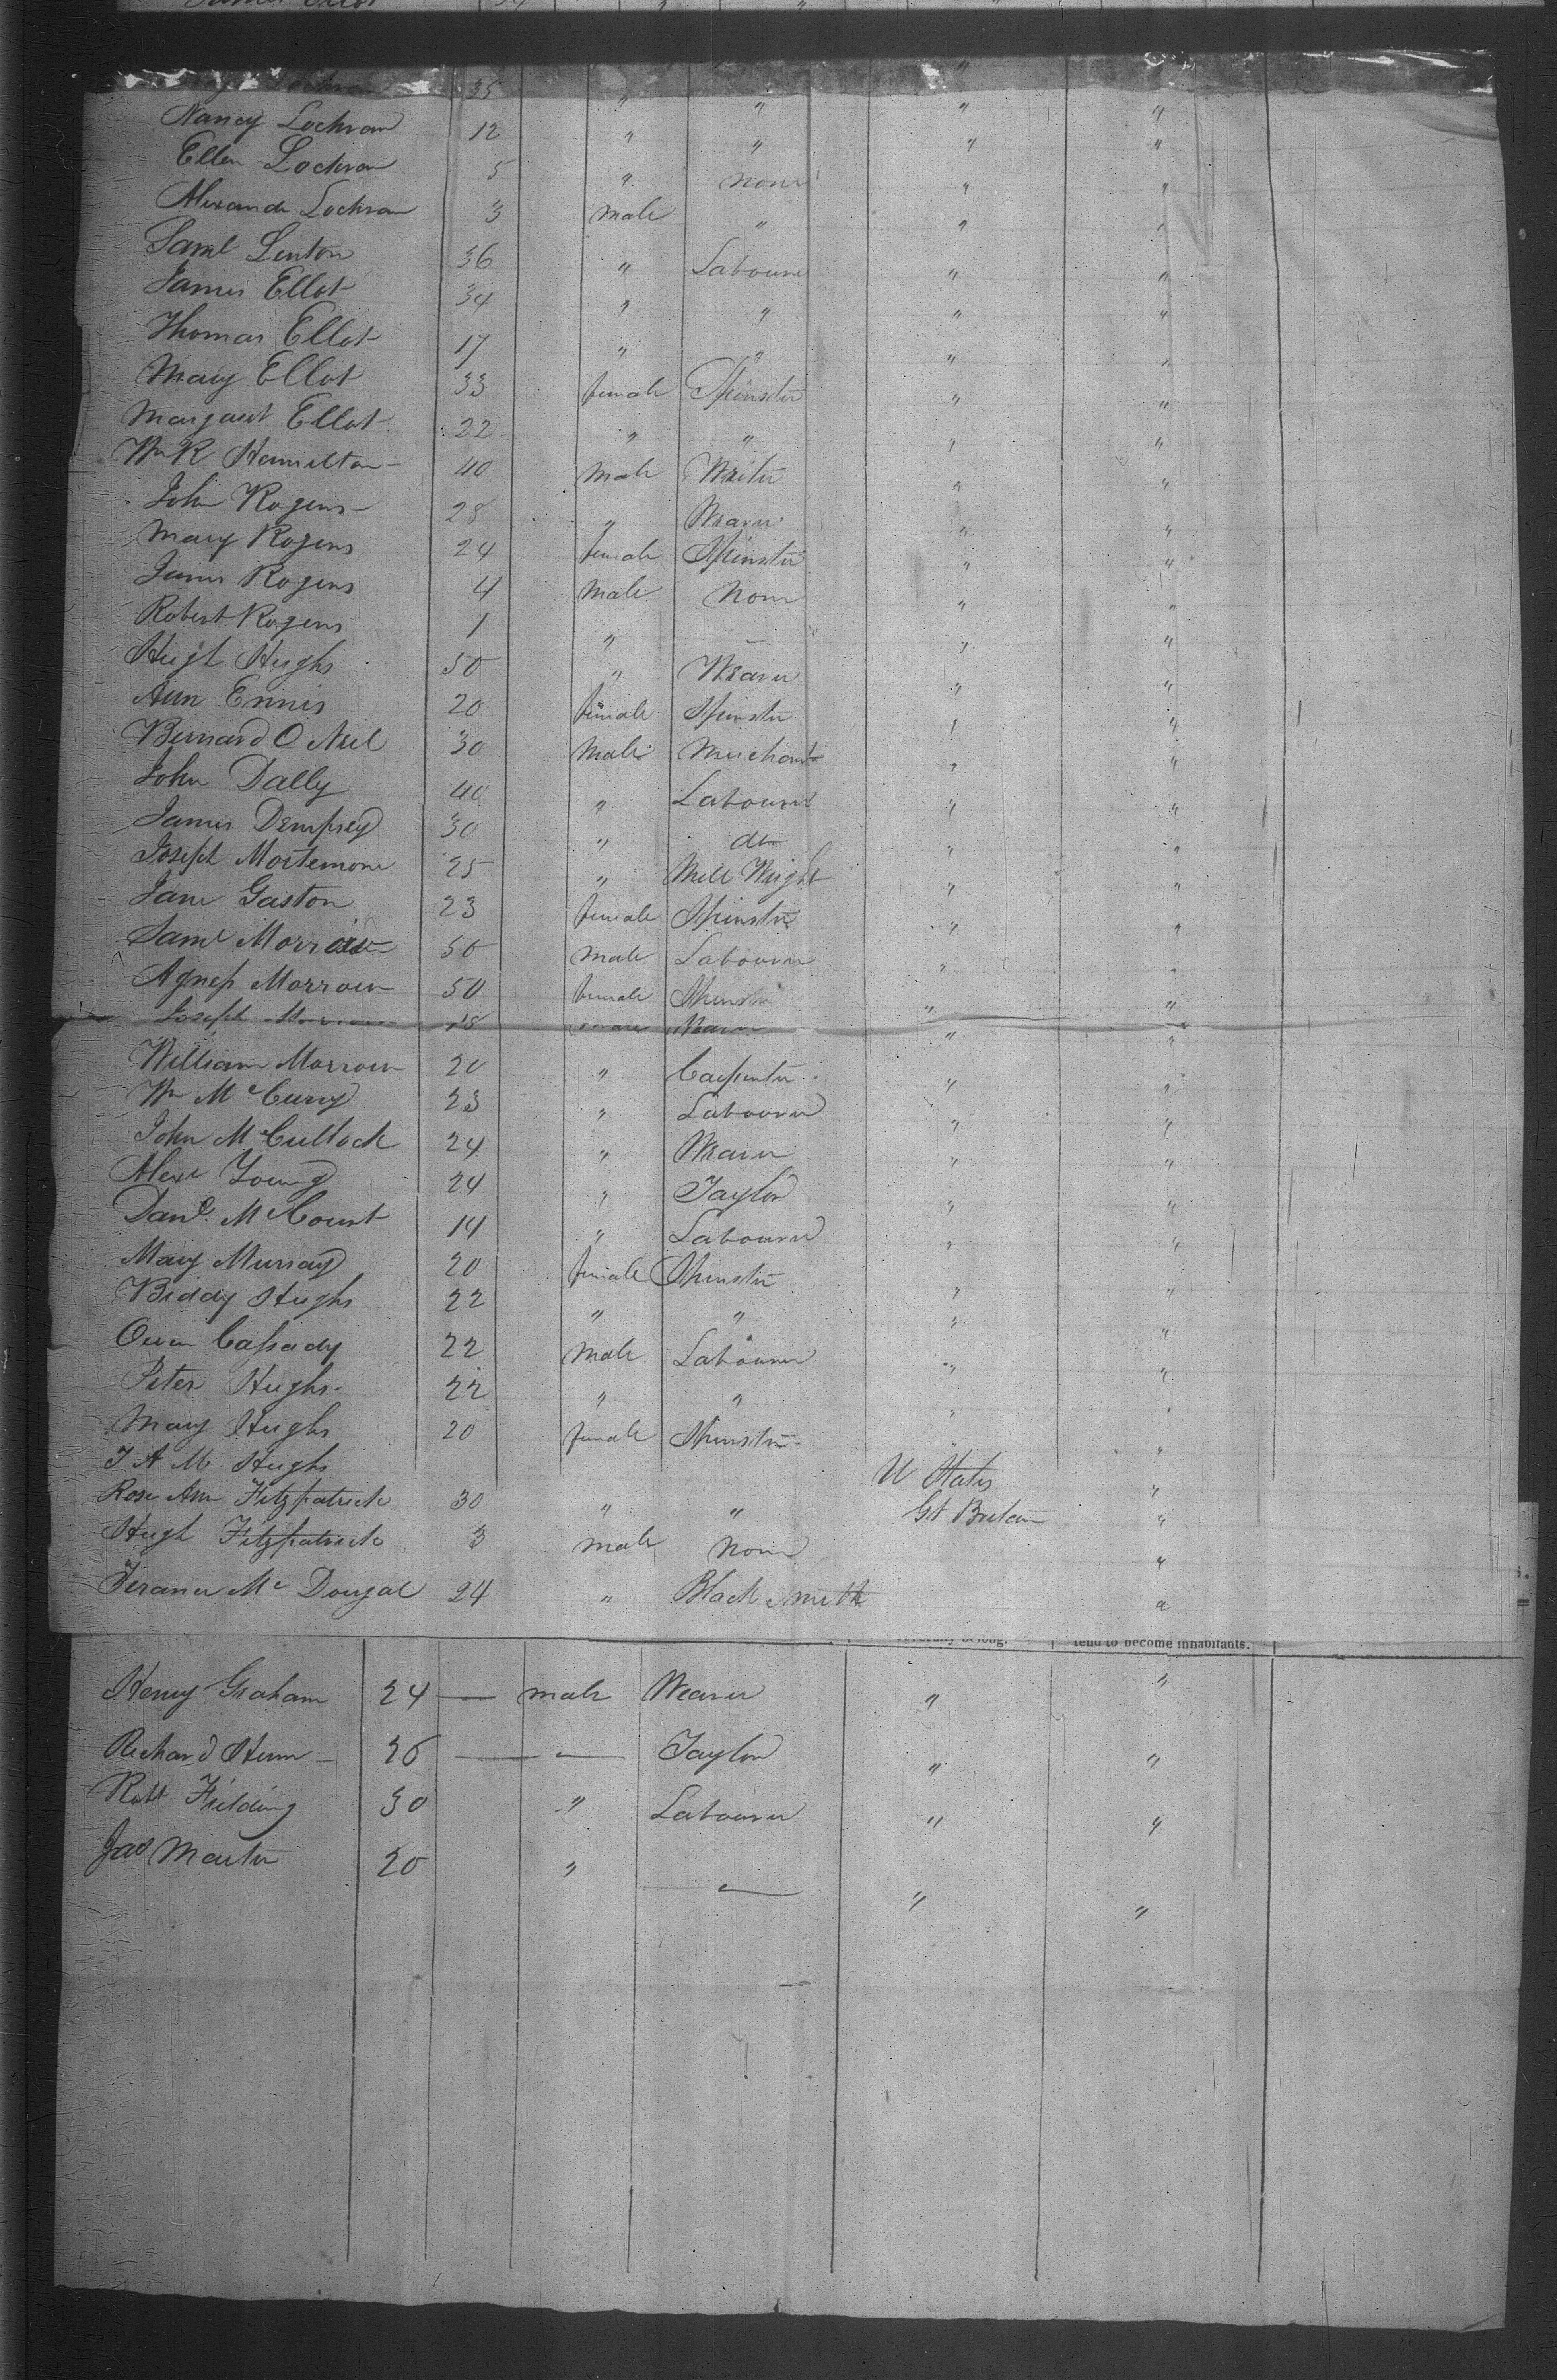 35 " " " "
Nancy Lochran 12 " " " "
Ellen Lochran 5 " none " "
Alexande Lochran 3 male " " "
Saml Linton 36 " Labourer " "
James Ellot 34 " " " "
Thomas Ellot 17 " " " "
Mary Ellot 33 female Spinster " "
Margaret Ellot 22 " " " "
Wm R Hamilton 40 male Writer " "
John Rogers 28 " Weaver " "
Mary Rogers 24 female Spinster " "
James Rogers 4 male None " "
Robert Rogers 1 " — " "
Hugh Hughs 50 " Weaver " "
Ann Ennis 20 female Spinster " "
Bernard O Neil 30 male Merchant " "
John Dally 40 " Labourer " "
James Dempsey 30 " do " "
Joseph Mortemore 25 " Mill Wright " "
Jane Gaston 23 female Spinster " "
Saml Morrow 50 male Labourer " "
Agness Morrow 50 female Spinster " "
Joseph " "
William Morrow 20 " Carpenter " "
Wm McCurry 23 " Labourer " "
John McCullock 24 " Weaver " "
Alexr Young 24 " Taylor " "
Danl. McCourt 14 " Labourer " "
Mary Murray 20 female Spinster " "
Biddy Hughs 22 " " " "
Owen Cassady 22 male Labourer " "
Peter Hughs 22 " " " "
Mary Hughs 20 female Spinster " "
J A M Hughs U States "
Rose Ann Fitzpatrick 30 " " Gt Britain "
Hugh Fitzpatrick 3 male None "
McDougal 24 " Black Smith "
tend to become inhabitants.
Henry Graham 24 — male Weaver " "
Richard 26 — — Taylor " "
Robt Fielding 30 " Labourer " "
Jas Martin 20 " — " "